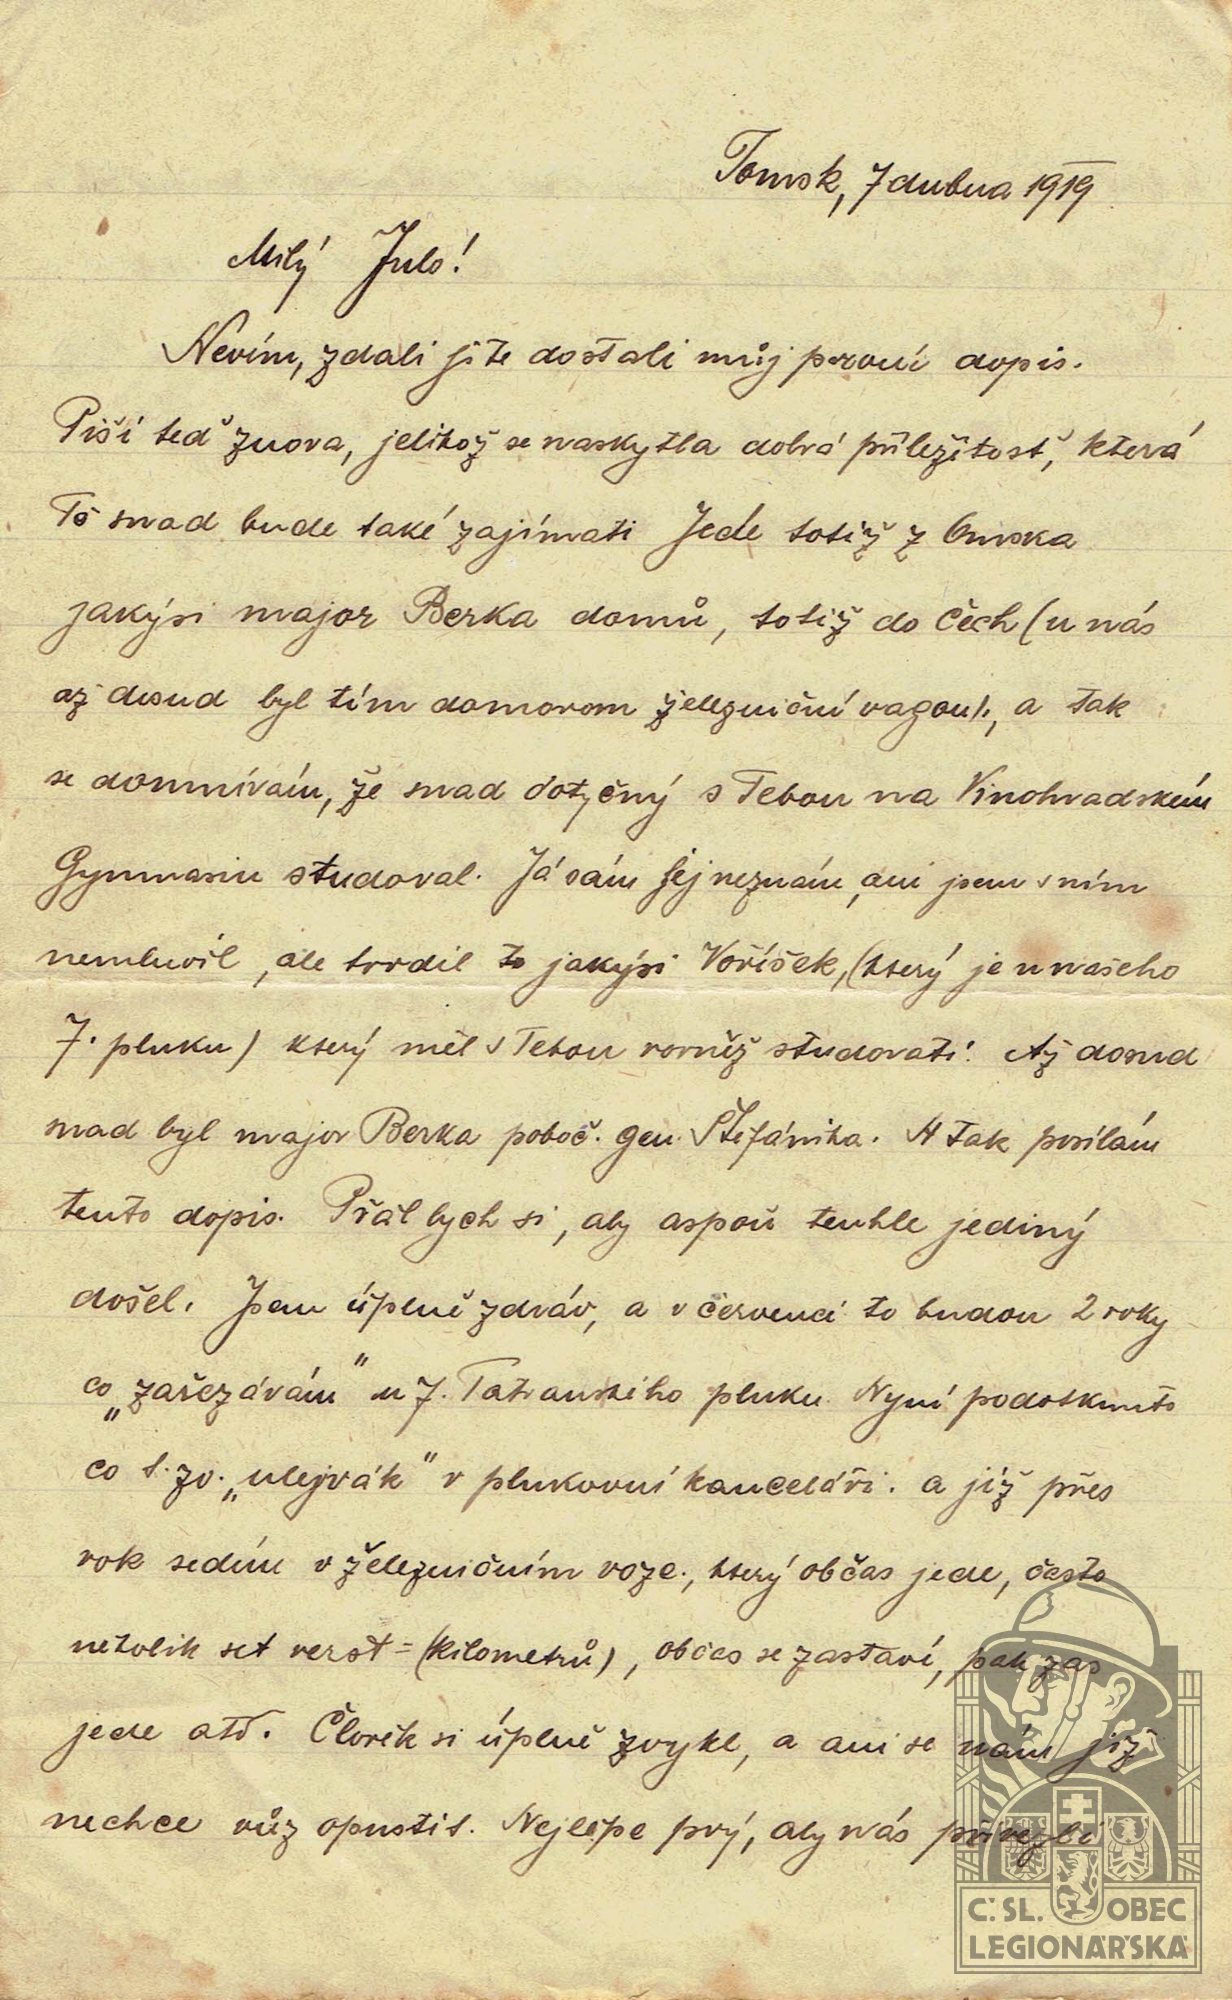 Tomsk, 7 dubna 1919
Milý Julo!
Nevím, zdali jste dostali můj první dopis.
Píši teď znova, jelikož se naskytla dobrá příležitost, která
Tě snad bude také zajímati Jede totiž z Omska
jakýsi major Berka domů, totiž do Čech (u nás
až dosud byl tím domovem železniční vagon), a tak
se domnívám, že snad dotyčný s Tebou na Vinohradském
Gymnasiu studoval. Já sám jej neznám, ani jsem s ním
nemluvil, ale tvrdil to jakýsi Voříšek, (který je u našeho
7. pluku) který měl s Tebou rovněž studovati. Až dosud
snad byl major Berka poboč. gen. Štefánika. A tak posílám
tento dopis. Přál bych si, aby aspoň tenhle jediný
došel. Jsem úplně zdráv, a v červenci to budou 2 roky
co „zařezávám" u 7. Tatranského pluku. Nyní podotknuto
co t. zv. „ulejvák" v plukovní kanceláři. a již přes
rok sedím v železničním voze, který občas jede, často
několik set verst = (kilometrů), občas se zastaví, pak zas
jede atd. Člověk si úplně zvykl, a ani se nám již
nechce vůz opustit. Nejlépe prý, aby nás přivezli
Č. SL. OBEC
LEGIONÁŘSKÁ